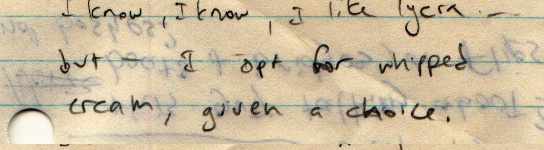 I know, I know, I like lycra —
but — I opt for whipped
cream, given a choice.